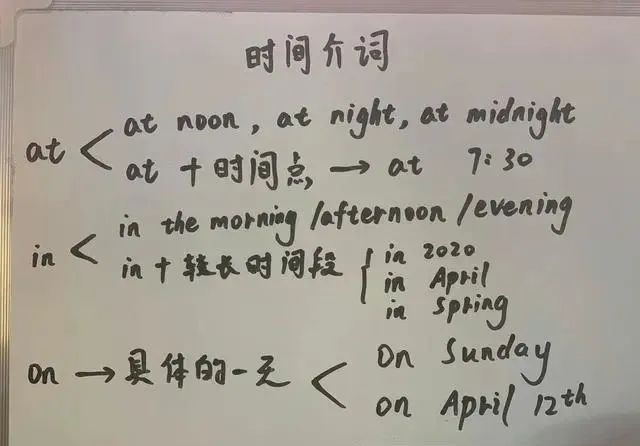 时间介词
at < at noon, at night, at midnight
at + 时间点 → at 7:30
in < in the morning /afternoon /evening
in + 较长时间段 { in 2020
in April
in spring
on → 具体的一天 < On Sunday
on April 12th